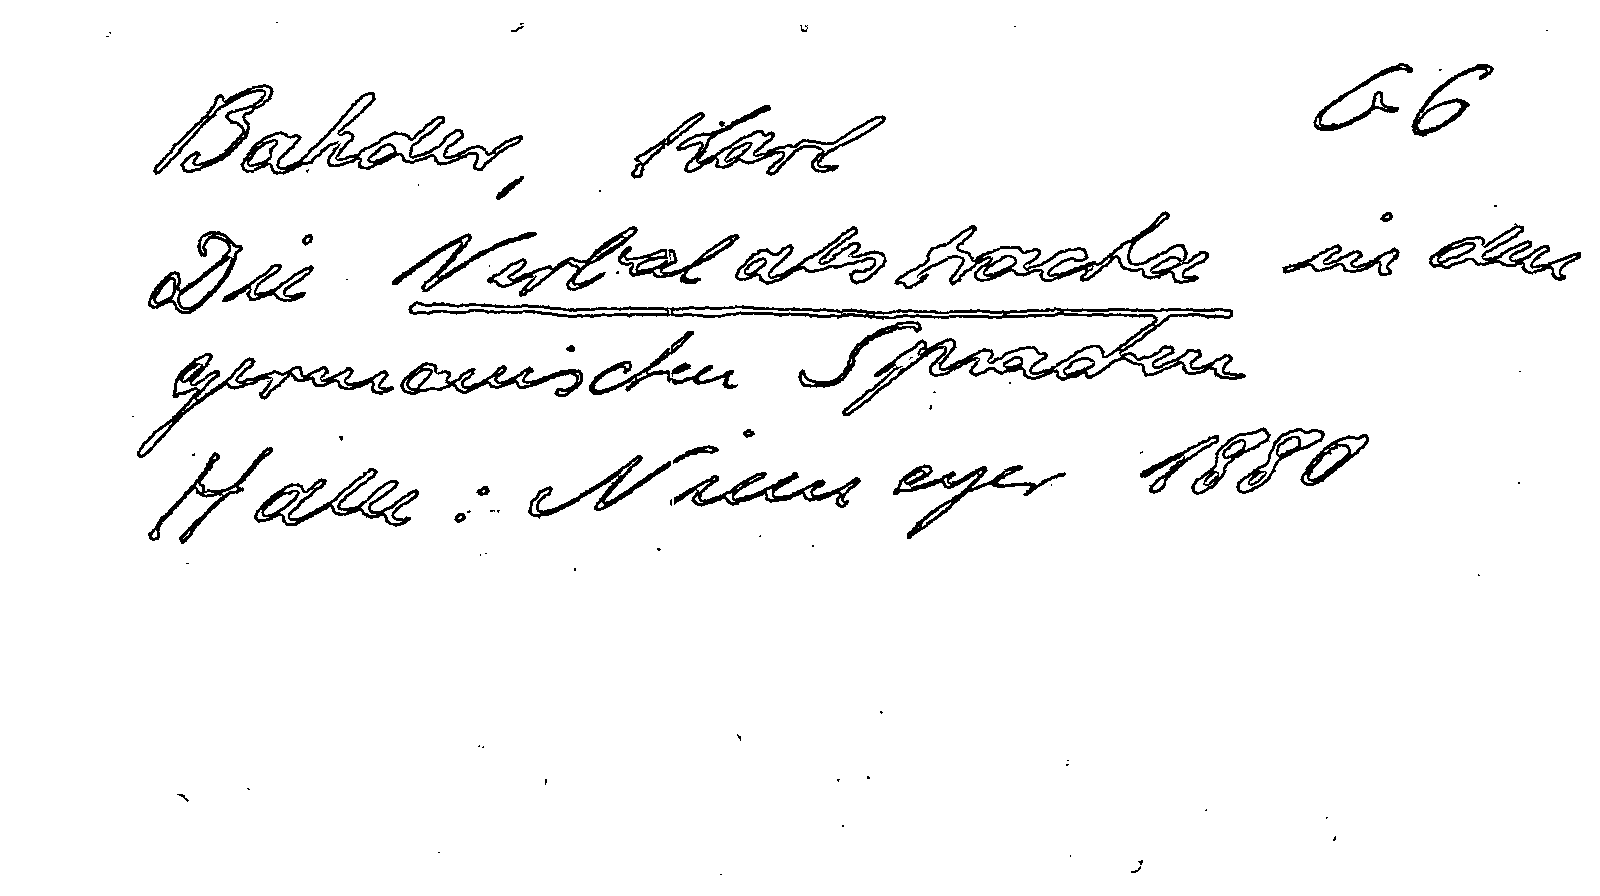 Bahder, Karl G6
Die Verbalabstracta in den
germanischen Sprachen
Halle : Niemeyer 1880